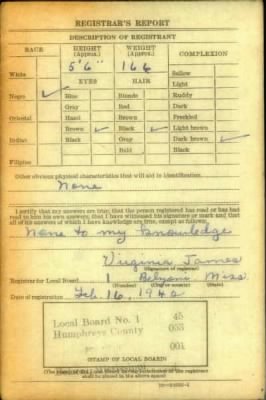 REGISTRAR'S REPORT
DESCRIPTION OF REGISTRANT
RACE HEIGHT (Approx.) WEIGHT (Approx.) COMPLEXION
5'6" 166
White EYES HAIR Sallow
Light
Negro ✓ Blue Blonde Ruddy
Gray Red Dark
Oriental Hazel Brown Freckled
Brown ✓ Black ✓ Light brown
Indian Black Gray Dark brown ✓
Bald Black
Filipino
Other obvious physical characteristics that will aid in identification
None
I certify that my answers are true; that the person registered has read or has had
read to him his own answers; that I have witnessed his signature or mark and that
all of his answers of which I have knowledge are true, except as follows:
None to my knowledge
Virginia James
(Signature of registrar)
Registrar for Local Board 1 Belzoni Miss.
(Number) (City or county) (State)
Date of registration Feb. 16, 1942
Local Board No. 1 45
Humphreys County 053
001
STAMP OF LOCAL BOARD
shall be placed in the above space)